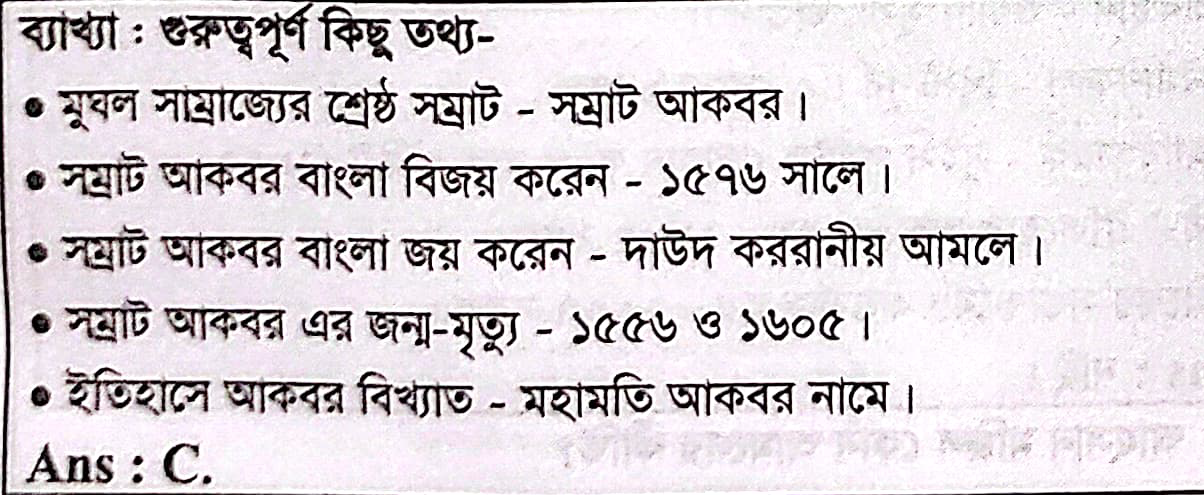 ব্যাখ্যা : গুরুত্বপূর্ণ কিছু তথ্য-
• মুঘল সাম্রাজ্যের শ্রেষ্ঠ সম্রাট - সম্রাট আকবর।
• সম্রাট আকবর বাংলা বিজয় করেন - ১৫৭৬ সালে।
• সম্রাট আকবর বাংলা জয় করেন - দাউদ কররানীয় আমলে।
• সম্রাট আকবর এর জন্ম-মৃত্যু - ১৫৫৬ ও ১৬০৫।
• ইতিহাসে আকবর বিখ্যাত - মহামতি আকবর নামে।
Ans : C.